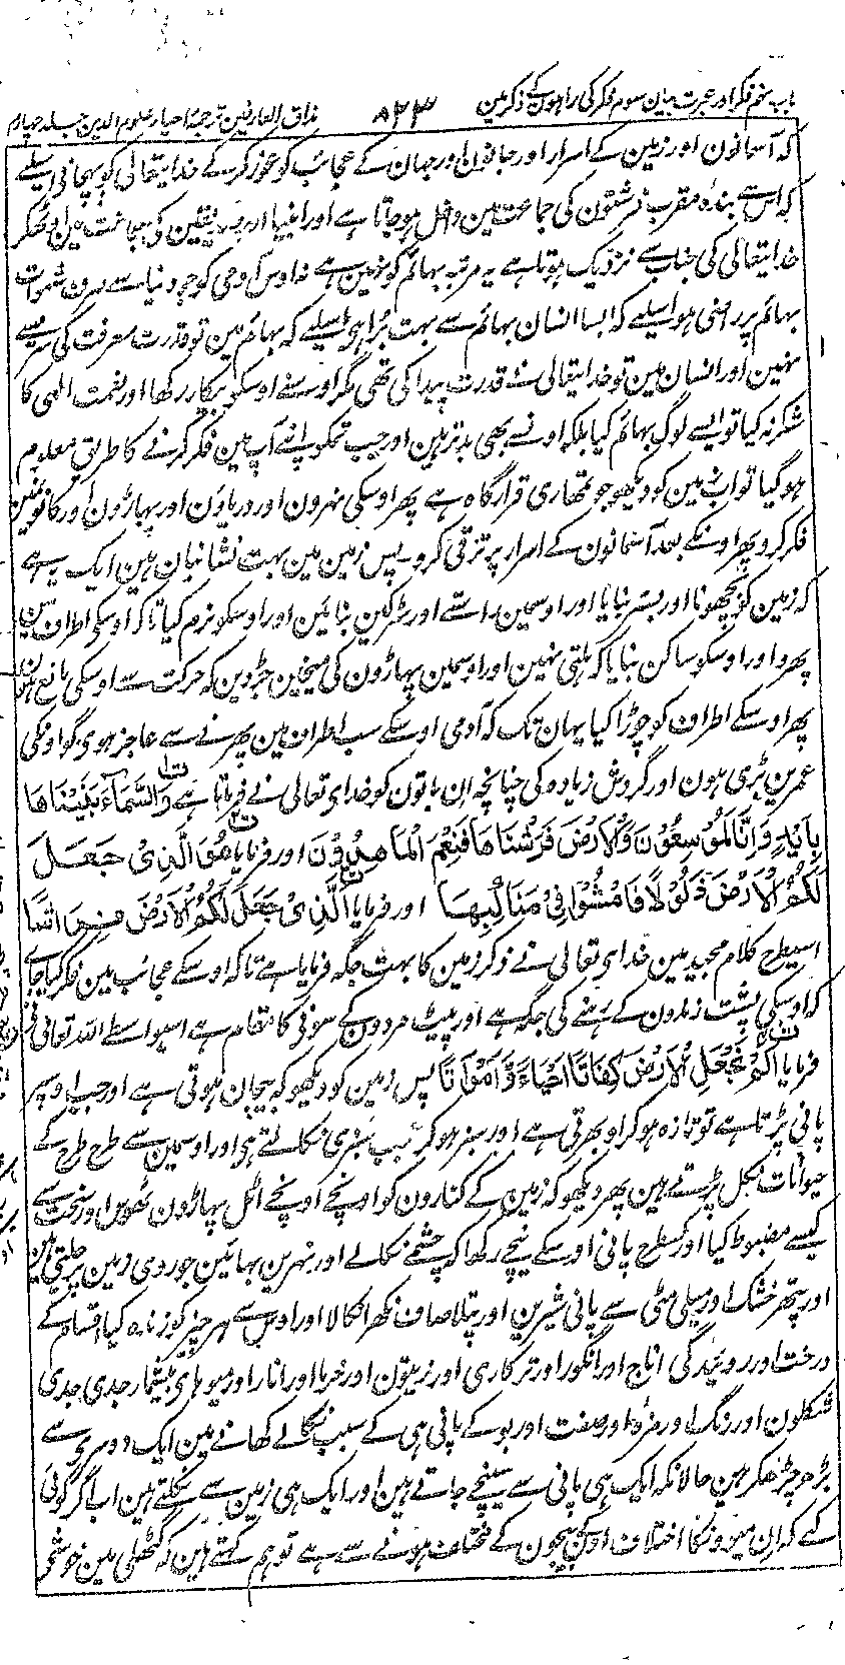 باب نہم فکر اور عبرت بیان سوم فکر کی راہوں کے ذکر مین ۸۲۳ مذاق العارفین ترجمۂ احیاء علوم الدین جلد چہارم
کہ آسمانون اور زمین کے اسرار اور جانون اور جہان کے عجائب کو غور کر کے خدایتعالی کو پہچانی اسلیے
کہ اس سے بندہ مقرب فرشتون کی جماعت مین داخل ہو جاتا ہے اور انبیا اور صدیقین کی جماعت مین اوٹھکر
خدایتعالی کی جناب سے نزدیک ہوتا ہے یہ مرتبہ بہائم کو نہین ہے نہ اوس آدمی کو جو دنیا سے صرف شہوات
بہائم پر راضی ہو اسلیے کہ ایسا انسان بہائم سے بہت برا ہی اسلیے کہ بہائم مین تو قدرت معرفت کی سرے سے
نہین اور انسان مین تو خدایتعالی نے قدرت پیدا کی تھی مگر اوسنے اوسکو بیکار رکھا اور نعمت الٰہی کا
شکر نہ کیا تو ایسے لوگ بہائم کیا بلکہ اونسے بھی بدتر ہین اور جب تمکو اپنے آپ مین فکر کرنے کا طریق معلوم
ہو گیا تو اب زمین کو دیکھو جو تمھاری قرارگاہ ہے پھر اوسکی نہرون اور دریاؤن اور پہاڑون اور کانونمین
فکر کرو پھر اوسکے بعد آسمانون کے اسرار پر ترقی کرو پس زمین مین بہت نشانیان ہین ایک یہ ہے
کہ زمین کو بچھونا اور بستر بنایا اور اوسمین راستے اور سڑکین بنائین اور اوسکو نرم کیا تاکہ اوسکی اطراف مین
پھرو اور اوسکو ساکن بنایا کہ ہلتی نہین اور اوسمین پہاڑون کی میخین جڑ دین کہ حرکت سے اوسکی مانع ہون
پھر اوسکے اطراف کو چوڑا کیا یہان تک کہ آدمی اوسکے سب اطراف مین پھرنے سے عاجز ہوی گو اونکی
عمرین بڑی ہون اور گردش زیادہ کی چنانچہ ان باتون کو خدای تعالی نے فرمایا ہے وَالسَّمَآءَ بَنَيْنَاهَا
بِأَيْدٍ وَإِنَّا لَمُوسِعُوْنَ وَالْأَرْضَ فَرَشْنَاهَا فَنِعْمَ الْمَاهِدُوْنَ اور فرمایا هُوَ الَّذِىْ جَعَلَ
لَكُمُ الْأَرْضَ ذَلُوْلًا فَامْشُوْا فِىْ مَنَاكِبِهَا اور فرمایا الَّذِىْ جَعَلَ لَكُمُ الْأَرْضَ فِرَاشًا
اسیطرح کلام مجید مین خدای تعالی نے ذکر زمین کا بہت جگہ فرمایا ہے تاکہ اوسکے عجائب مین فکر کیا جاے
کہ اوسکی پشت زندون کے رہنے کی جگہ ہے اور پیٹ مردون کے سونی کا مقام ہے اسیواسطے اللہ تعالی نے
فرمایا اَلَمْ نَجْعَلِ الْأَرْضَ كِفَاتًا اَحْيَاءً وَّاَمْوَاتًا پس زمین کو دیکھو کہ بیجان ہوتی ہے اور جب اوسپر
پانی پڑتا ہے تو تازہ ہو کر اوبھرتی ہے اور سبز ہو کر سبزی نکالتی ہی اور اوسمین سے طرح طرح کے
حیوانات نکل پڑتے ہین پھر دیکھو کہ زمین کے کنارون کو اونچے اونچے اٹل پہاڑون ٹھوس اور سخت سے
کیسے مضبوط کیا اور کسطرح پانی اوسکے نیچے رکھا کہ چشمے نکالے اور نہرین بہائین جو روی زمین پر چلتی ہین
اور پتھر خشک اور میلی مٹی سے پانی شیرین اور پتلا صاف نکھرا نکالا اور اوس سے ہر چیز کو زندہ کیا اقسام کے
درخت اور روئیدگی اناج اور انگور اور ترکاری اور زیتون اور خرما اور انار اور میوہای بیشمار جدی جدی
شکلون اور رنگ اور مزہ اور صفت اور بو کے پانی ہی کے سبب نکالے کھانے مین ایک دوسرے سے
بڑھ چڑھکر ہین حالانکہ ایک ہی پانی سے سینچے جاتے ہین اور ایک ہی زمین سے نکلتے ہین اب اگر کوئی
کہے کہ ان میوونکا اختلاف اونکے بیجون کے مختلف ہونے سے ہے تو ہم کہتے ہین کہ گٹھلی مین خوشہ